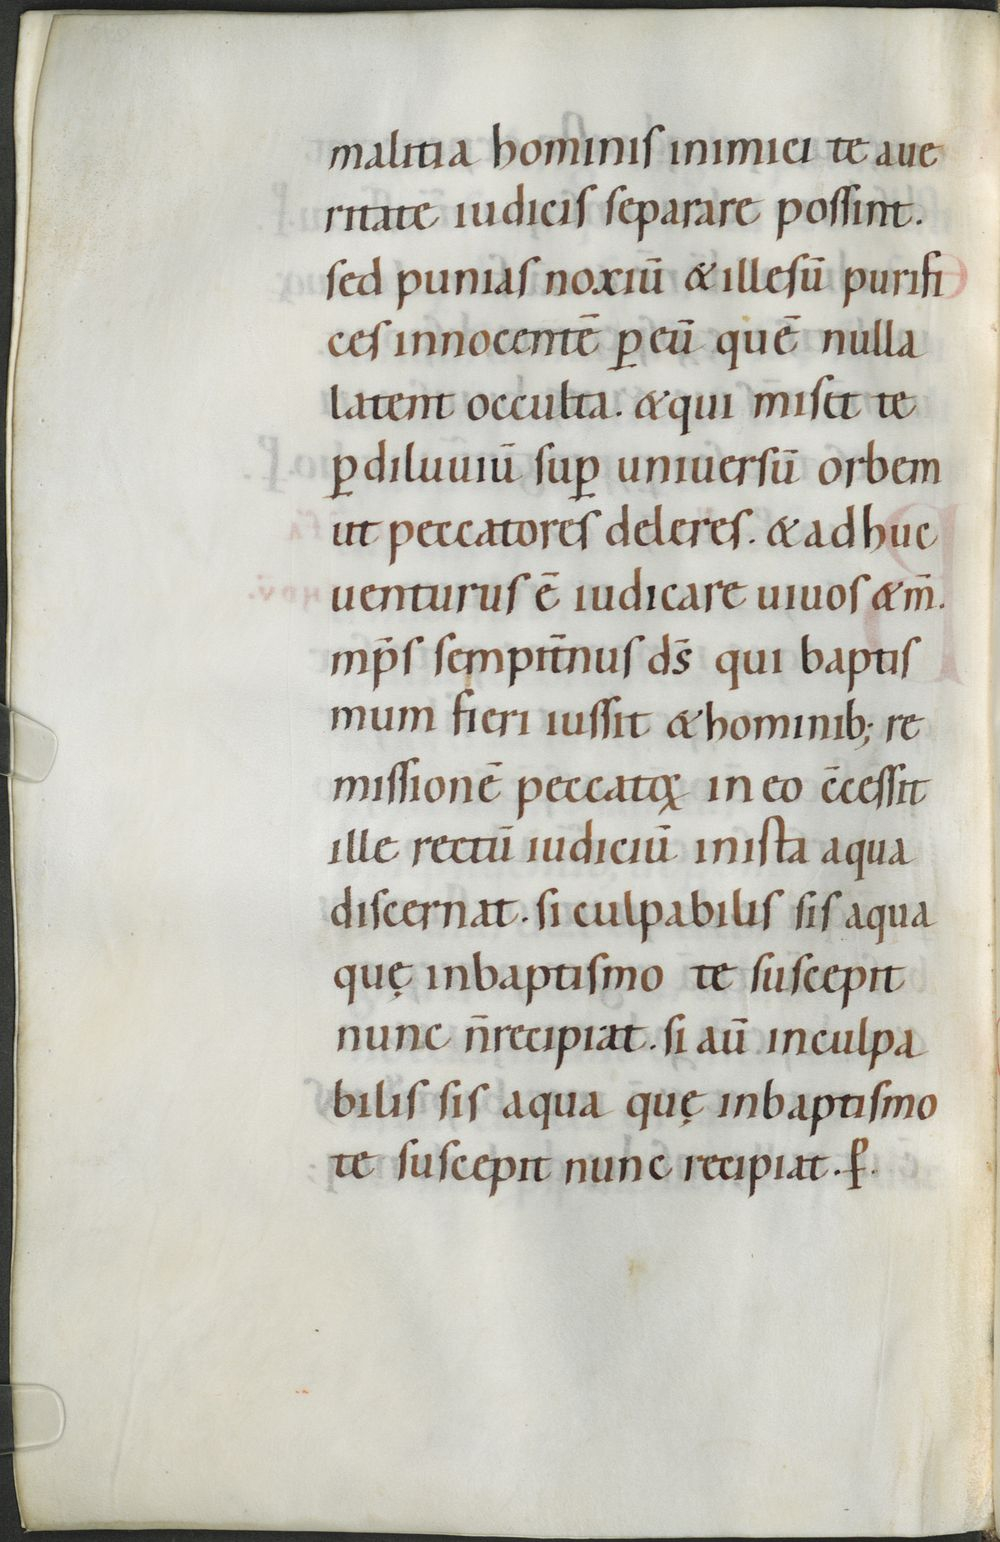 malitia hominis inimici te aue
ritate iudicis separare possint.
sed punias noxiū & illesū purifi
ces innocentē ꝑ eū quē nulla
latent occulta. & qui misit te
ꝑ diluuiū suꝑ uniuersū orbem
ut peccatores deleres. & adhuc
uenturus ē iudicare uiuos & m̄.
mp̄s sempit̄nus ds̄ qui baptis
mum fieri iussit & hominib; re
missionē peccatoꝝ in eo c̄cessit
ille rectū iudiciū in ista aqua
discernat. si culpabilis sis aqua
quę inbaptismo te suscepit
nunc n̄ recipiat. si aū inculpa
bilis sis aqua quę inbaptismo
te suscepit nunc recipiat. ꝑ.